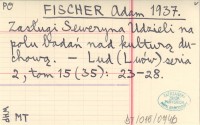 PO
FISCHER Adam 1937.
Zasługi Seweryna Udzieli na
polu badań nad kulturą du-
chową. — Lud (Lwów) seria
2, tom 15 (35): 23-28.
MT